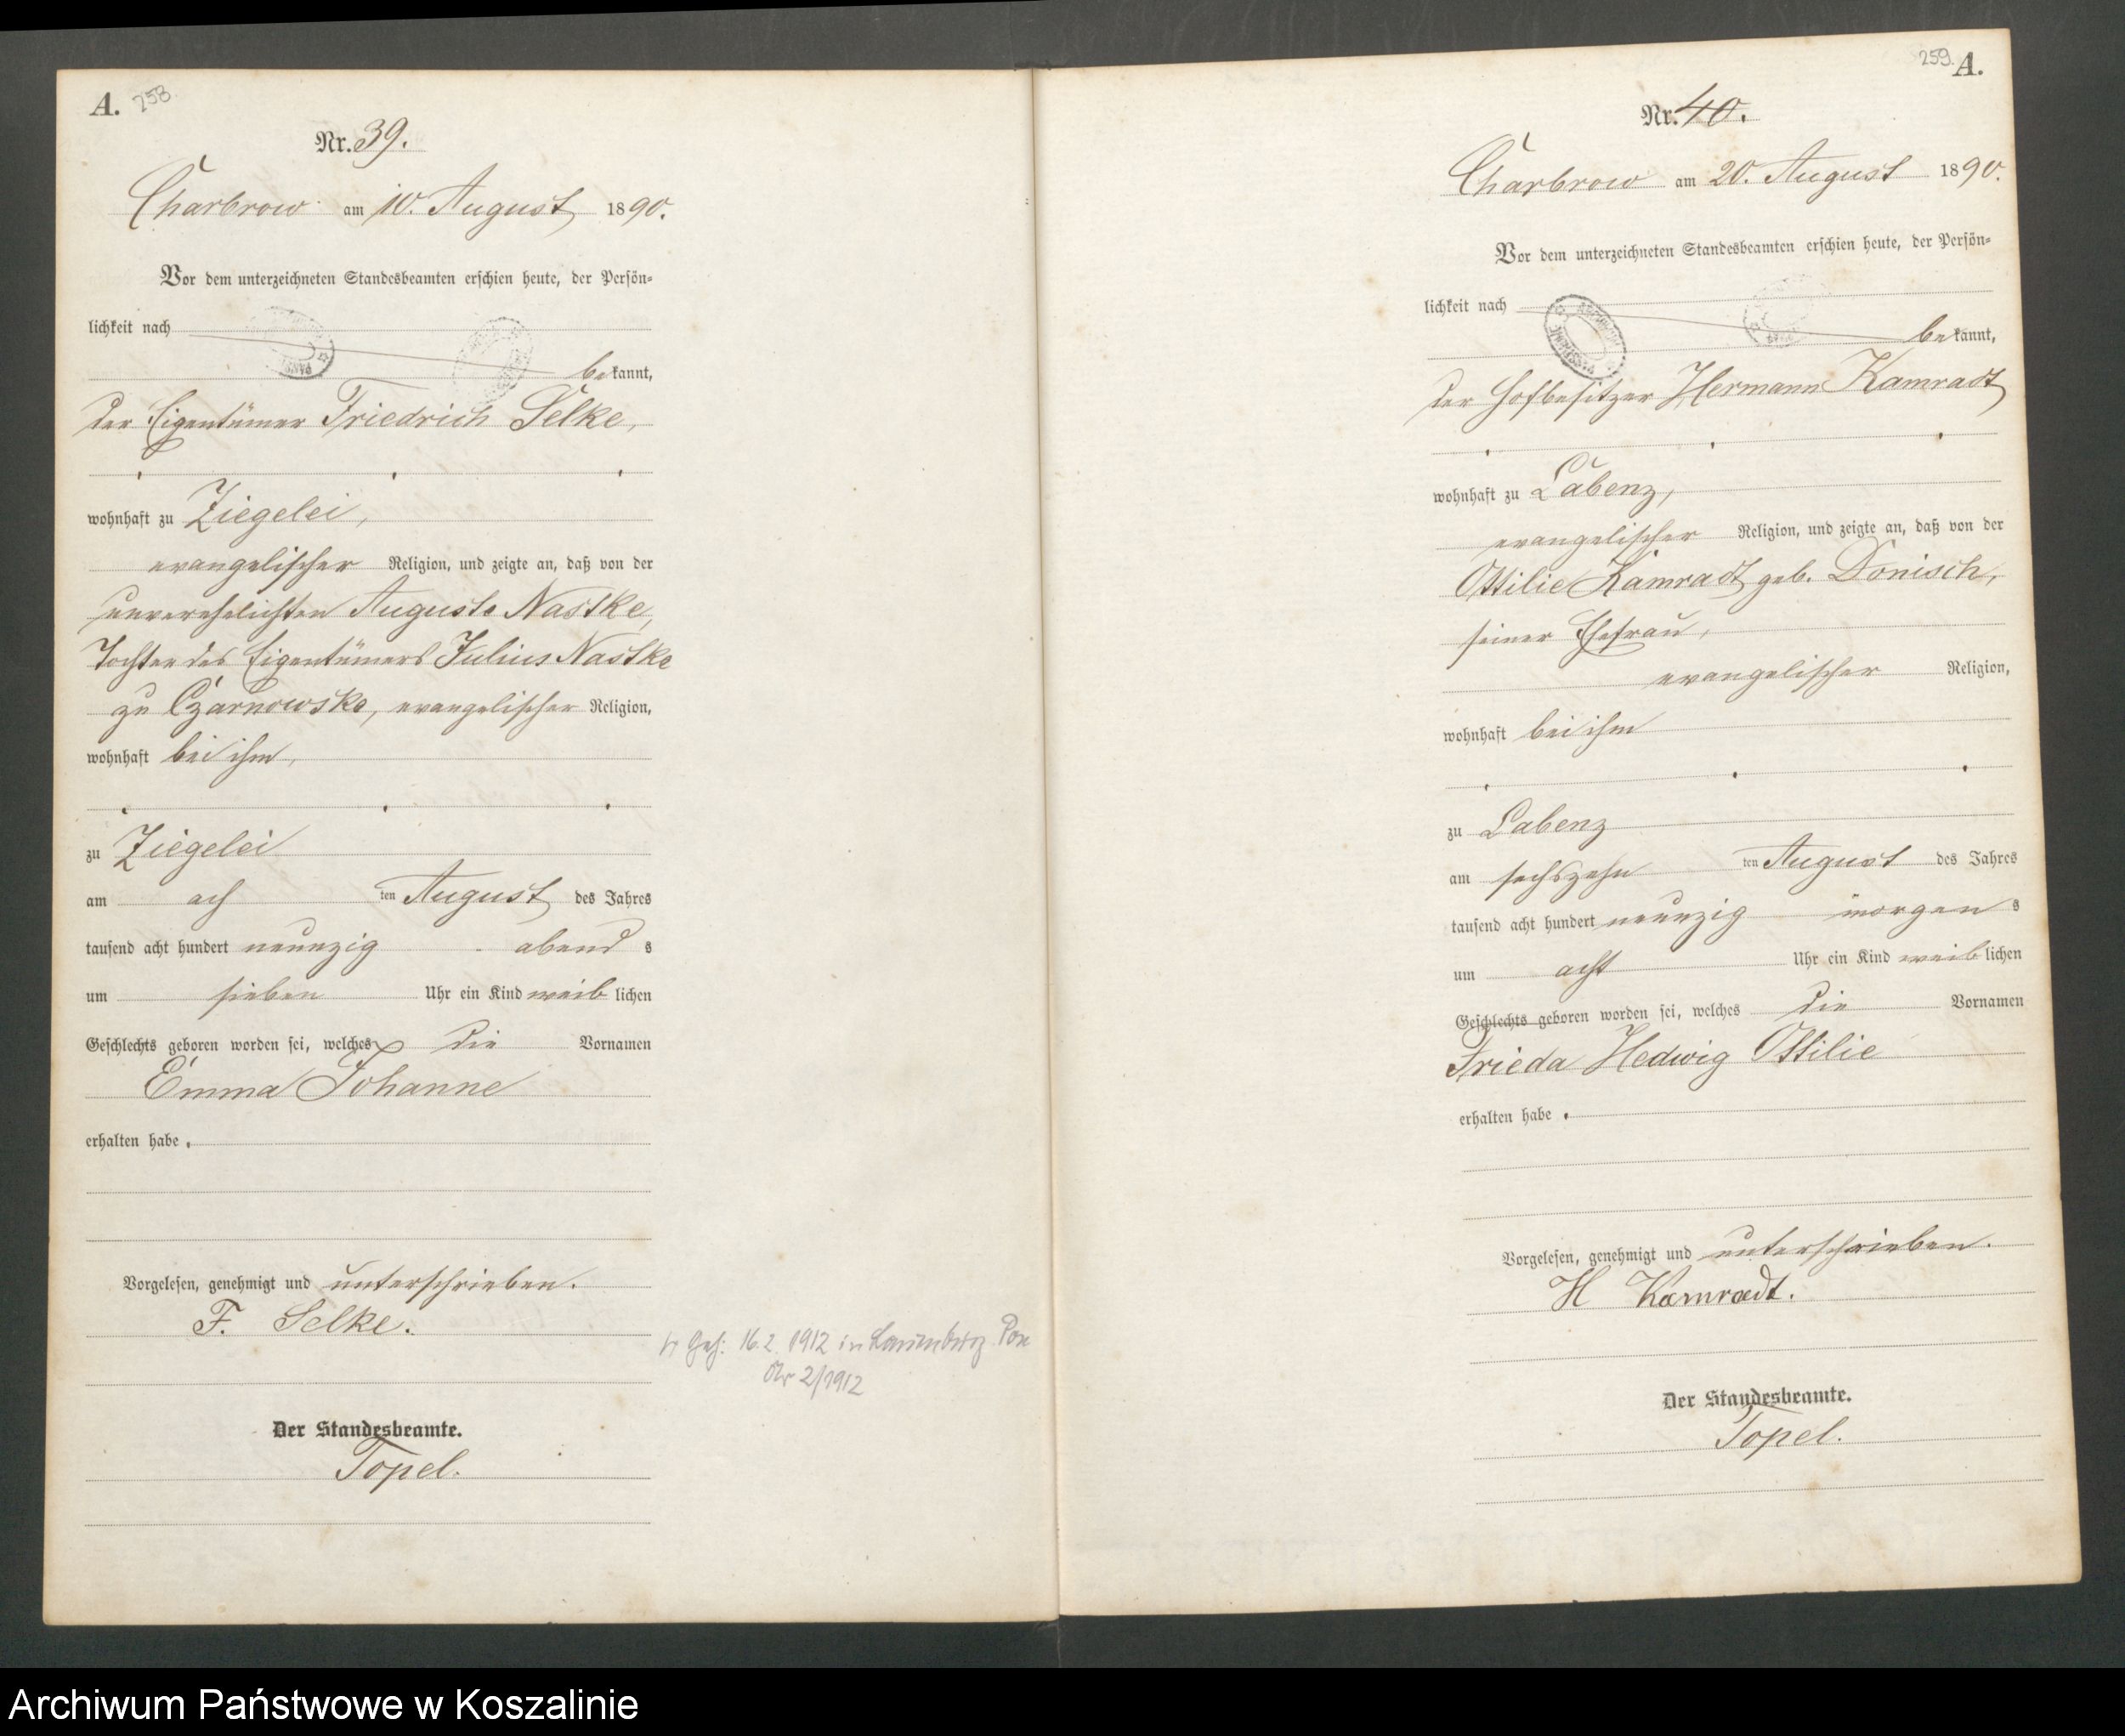 A. 258.
Nr. 39.
Charbrow am 10. August 1890.
Vor dem unterzeichneten Standesbeamten erschien heute, der Persön-
lichkeit nach
bekannt,
der Eigentümer Friedrich Selke,
wohnhaft zu Ziegelei,
evangelischer Religion, und zeigte an, daß von der
unverehelichten Auguste Nastke,
Tochter des Eigentümers Julius Nastke
zu Czarnowske, evangelischer Religion,
wohnhaft bei ihm,
zu Ziegelei
am ach ten August des Jahres
tausend acht hundert neunzig abend s
um sieben Uhr ein Kind weiblichen
Geschlechts geboren worden sei, welches die Vornamen
Emma Johanne
erhalten habe.
Vorgelesen, genehmigt und unterschrieben.
F. Selke.
Der Standesbeamte.
Topel.
16.2.1912 in Lauenburg Pom
Nr 2/1912
259. A.
Nr. 40.
Charbrow am 20. August 1890.
Vor dem unterzeichneten Standesbeamten erschien heute, der Persön-
lichkeit nach
bekannt,
der Hofbesitzer Hermann Kamradt
wohnhaft zu Labenz,
evangelischer Religion, und zeigte an, daß von der
Ottilie Kamradt geb. Dönisch,
seiner Ehefrau,
evangelischer Religion,
wohnhaft bei ihm
zu Labenz
am sechszehn ten August des Jahres
tausend acht hundert neunzig morgen s
um acht Uhr ein Kind weiblichen
Geschlechts geboren worden sei, welches die Vornamen
Frieda Hedwig Ottilie
erhalten habe.
Vorgelesen, genehmigt und unterschrieben.
H Kamradt.
Der Standesbeamte.
Topel.
Archiwum Państwowe w Koszalinie